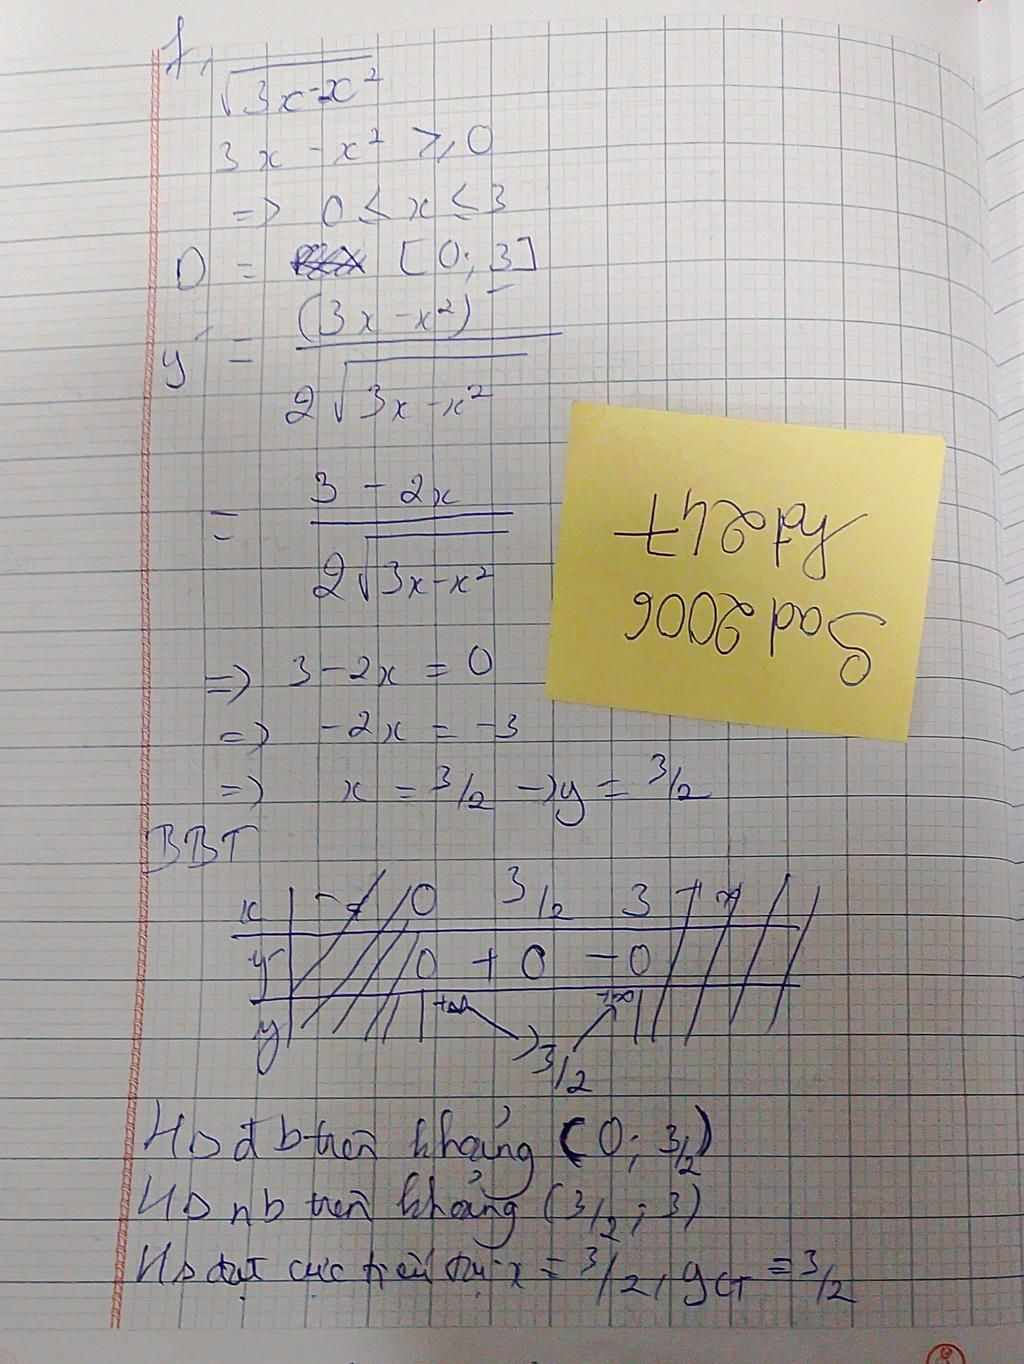 f,
√3x-x²
3x - x² ≥ 0
=> 0 ≤ x ≤ 3
D = [0; 3]
y' = (3x - x²)' / 2√3x-x²
= 3 - 2x / 2√3x-x²
=> 3 - 2x = 0
=> -2x = -3
=> x = 3/2 → y = 3/2
BBT
x | -∞ 0 3/2 3 +∞
y' 0 + 0 - 0
y +∞ 3/2 +∞
HS đb trên khoảng (0; 3/2)
HS nb trên khoảng (3/2; 3)
HS đạt cực tiểu tại x = 3/2, yCT = 3/2
Sad2006
hd247